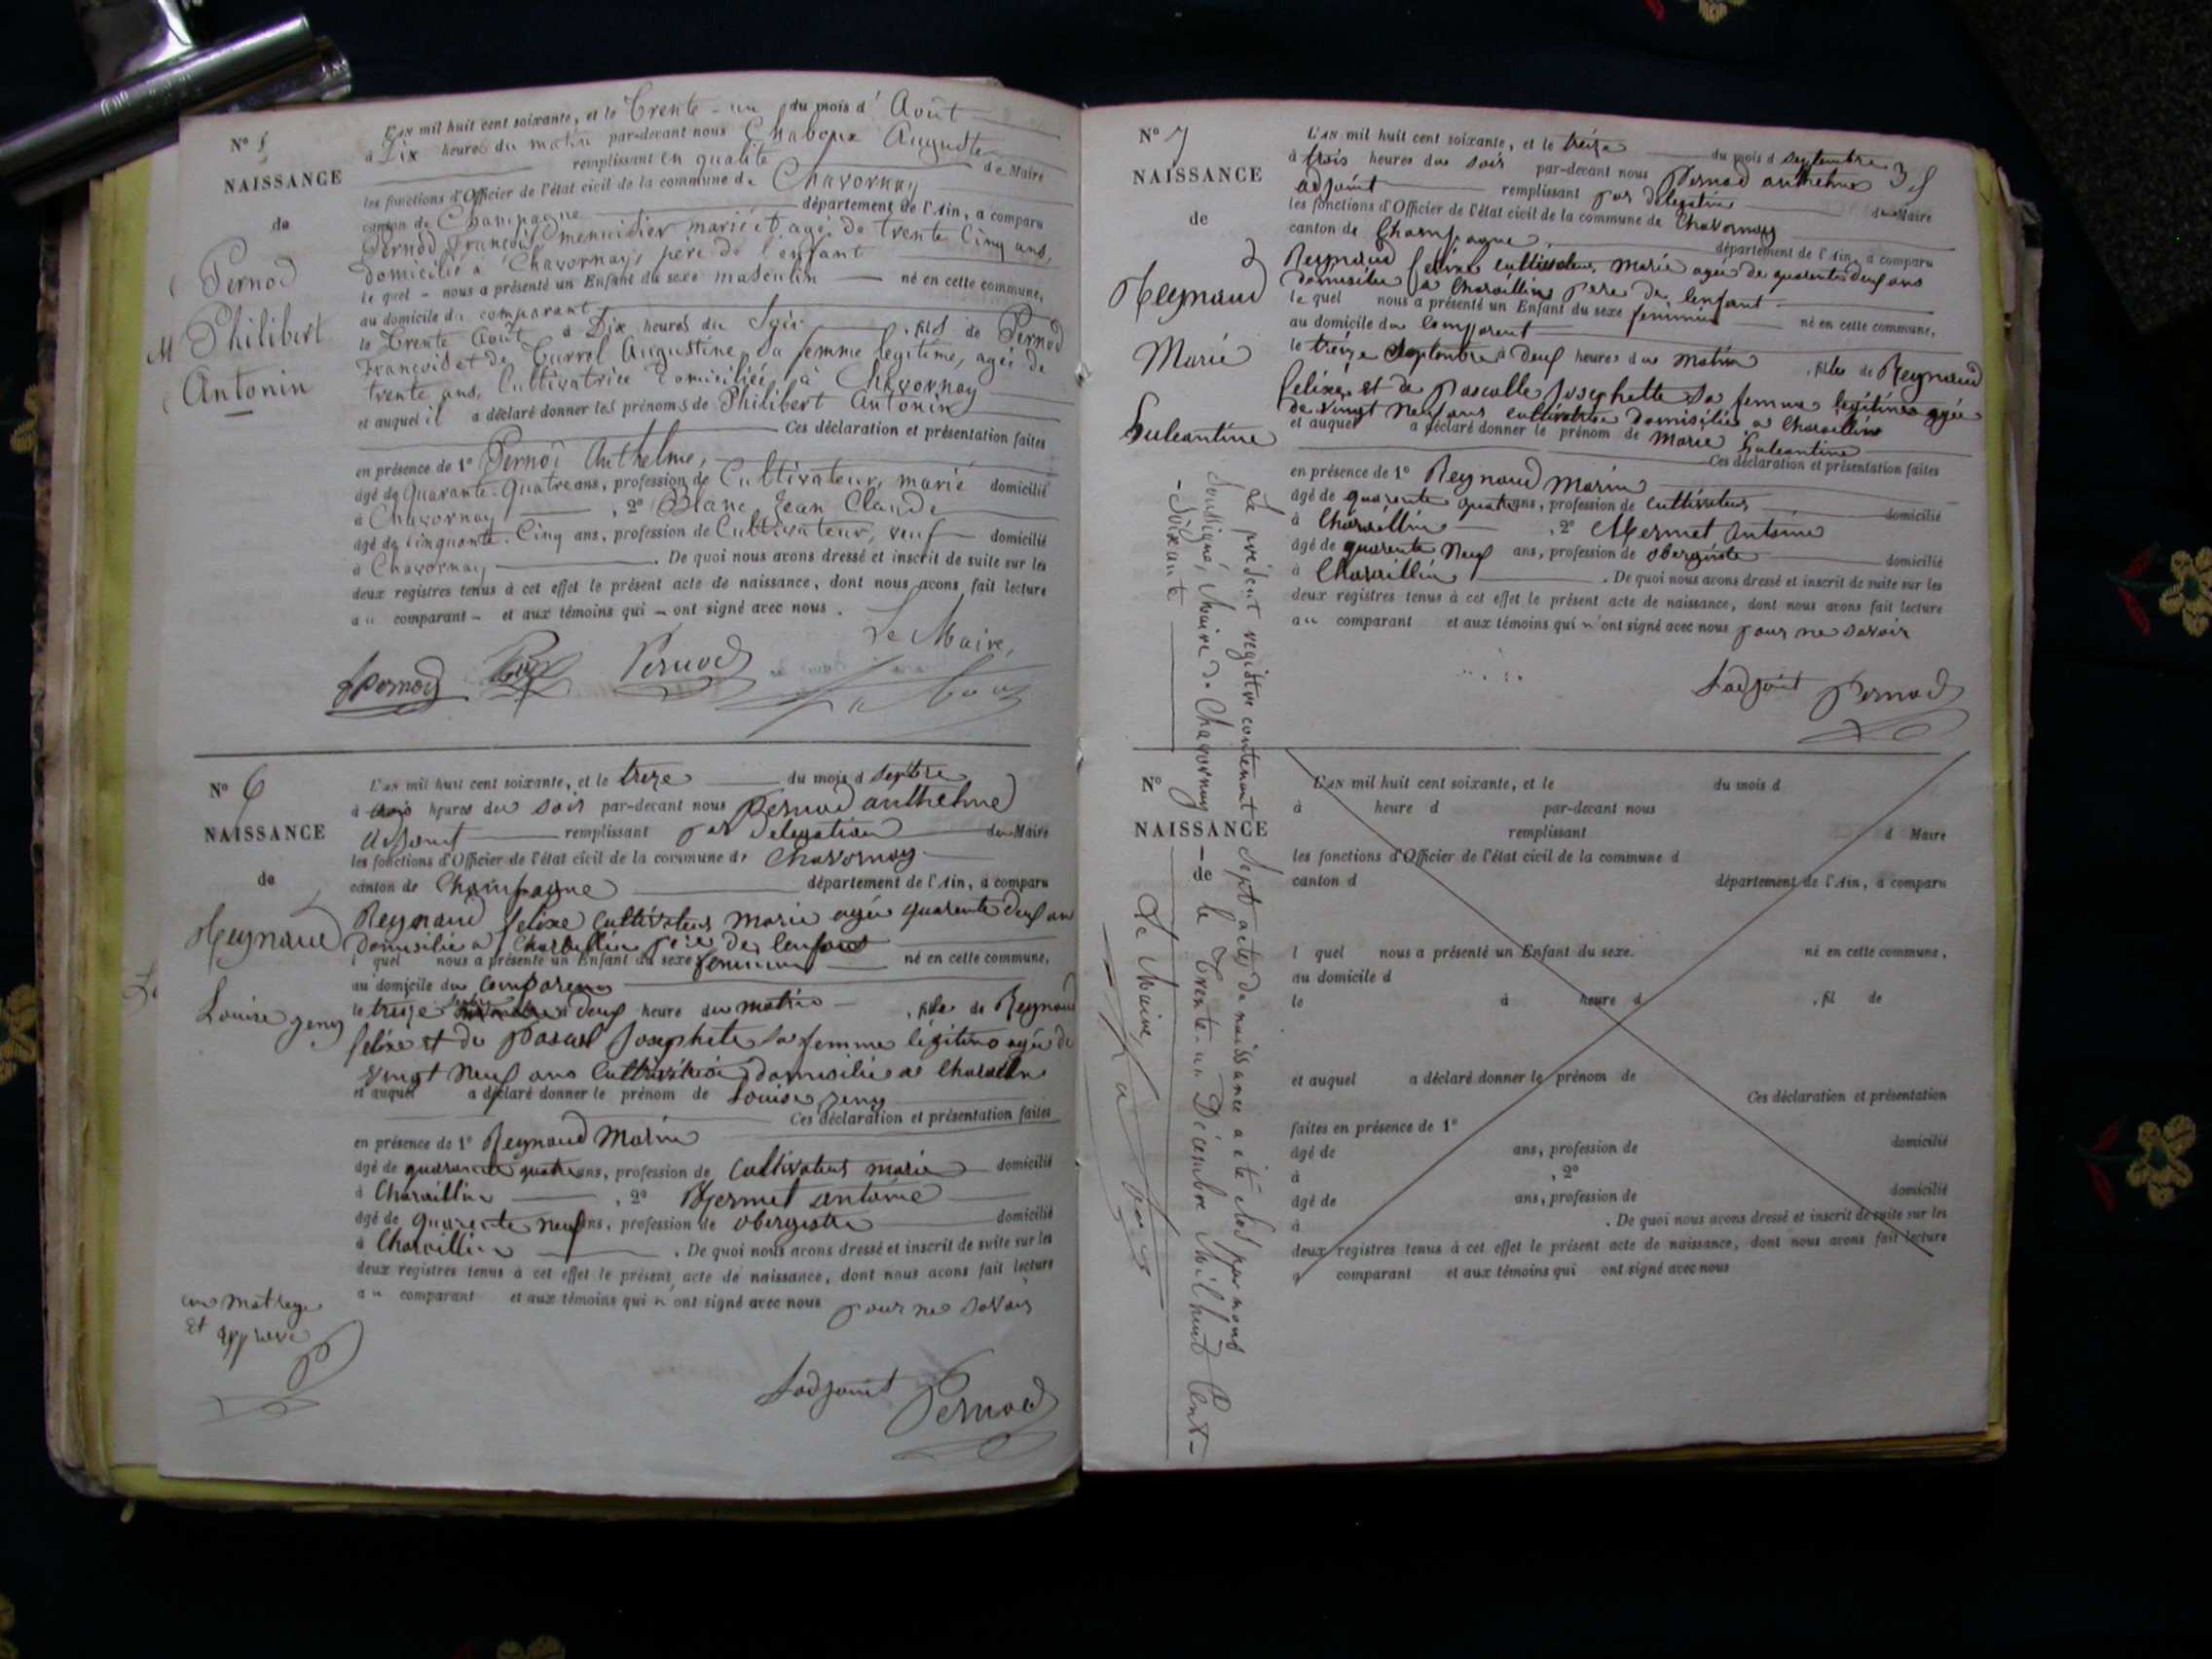 N° 5
NAISSANCE
de
Pernod
Philibert
Antonin
L'AN mil huit cent soixante, et le Trente-un du mois d' Août
à Dix heures du matin par-devant nous Chaboux Auguste
remplissant en qualité de Maire
les fonctions d'Officier de l'état civil de la commune de Chavornay
canton de Champagne département de l'Ain, a comparu
Pernod François menuisier marié et agé de trente Cinq ans,
domicilié à Chavornay, père de l'enfant
le quel - nous a présenté un Enfant du sexe masculin né en cette commune,
au domicile du comparant
le Trente Août à Dix heures du Soir, fils de Pernod
François et de Augustine sa femme légitime, agée de
trente ans, Cultivatrice domiciliée à Chavornay
et auquel il a déclaré donner les prénoms de Philibert Antonin
Ces déclaration et présentation faites
en présence de 1° Pernod Anthelme,
âgé de Quarante-Quatre ans, profession de Cultivateur, marié domicilié
à Chavornay, 2° Blanc Jean Claude
âgé de Cinquante-Cinq ans, profession de Cultivateur, veuf domicilié
à Chavornay. De quoi nous avons dressé et inscrit de suite sur les
deux registres tenus à cet effet le présent acte de naissance, dont nous avons fait lecture
au comparant - et aux témoins qui - ont signé avec nous.
Le Maire,
Pernod Pernod
N° 6
NAISSANCE
de
Reynaud
Louise Jeny
L'AN mil huit cent soixante, et le treze du mois d septbre
à trois heures du soir par-devant nous Pernod anthelme
adjoint remplissant par delegation du Maire
les fonctions d'Officier de l'état civil de la commune de Chavornay
canton de Champagne département de l'Ain, a comparu
Reynaud felixe Cultivateur marié agée quarente deux ans
domisilié a Charvillin père de lenfant
l quel nous a présenté un Enfant du sexe feminin né en cette commune,
au domicile du comparent
le treize à deux heure du matin, fille de Reynaud
felixe et de Pascal Josephete sa femme légitime agée de
vingt neuf ans Cultivatrice domisiliée a
et auquel a déclaré donner le prénom de Louise Jeny
Ces déclaration et présentation faites
en présence de 1° Reynaud Marin
âgé de quarante quatre ans, profession de Cultivateur marié domicilié
à Charvillin, 2° Mermet antoine
âgé de quarente neuf ans, profession de obergiste domicilié
à Charvillin. De quoi nous avons dressé et inscrit de suite sur les
deux registres tenus à cet effet le présent acte de naissance, dont nous avons fait lecture
au comparant et aux témoins qui n'ont signé avec nous pour ne savoir
Ladjoint Pernod
N° 7
NAISSANCE
de
Reynaud
Marie
L'AN mil huit cent soixante, et le treize du mois d septembre
à trois heures du soir par-devant nous Pernod anthelme
adjoint remplissant par delegation du Maire
les fonctions d'Officier de l'état civil de la commune de Chavornay
canton de Champagne département de l'Ain, a comparu
Reynaud felixe cultivateur marié agée de quarente deux ans
domisilié a Charvillin père de lenfant
le quel nous a présenté un Enfant du sexe feminin né en cette commune,
au domicile du comparent
le treize septembre à deux heures du matin, fille de Reynaud
felixe et de pascalle Josephette sa femme legitime agée
de vingt neuf ans cultivatrice domisiliée a Charvillin
et auquel a déclaré donner le prénom de Marie
Ces déclaration et présentation faites
en présence de 1° Reynaud Marin
âgé de quarente quatre ans, profession de cultivateur domicilié
à Charvillin, 2° Mermet Antoine
âgé de quarente neuf ans, profession de obergiste domicilié
à Charvillin. De quoi nous avons dressé et inscrit de suite sur les
deux registres tenus à cet effet le présent acte de naissance, dont nous avons fait lecture
au comparant et aux témoins qui n'ont signé avec nous pour ne savoir
Ladjoint Pernod
Le présent registre contenant Sept actes de naissance a été clos par nous
Soussigné, Maire de Chavornay - le Trente-un Décembre Mil huit Cent-
-Soixante
Le Maire,
N°
NAISSANCE
de
L'AN mil huit cent soixante, et le du mois d
à heure d par-devant nous
remplissant d Maire
les fonctions d'Officier de l'état civil de la commune d
canton d département de l'Ain, a comparu
l quel nous a présenté un Enfant du sexe né en cette commune,
au domicile d
le à heure d, fil de
et auquel a déclaré donner le prénom de
Ces déclaration et présentation
faites en présence de 1°
âgé de ans, profession de domicilié
à, 2°
âgé de ans, profession de domicilié
à. De quoi nous avons dressé et inscrit de suite sur les
deux registres tenus à cet effet le présent acte de naissance, dont nous avons fait lecture
a comparant et aux témoins qui ont signé avec nous